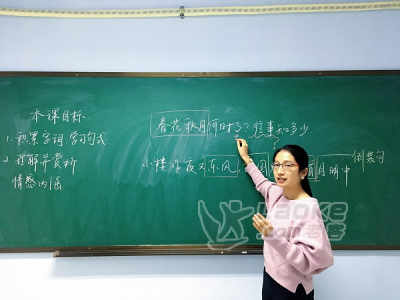 本课目标
1. 积累字词 学习句式
2. 理解并赏析
情感内涵
春花秋月何时了?往事知多少
?
小楼昨夜又东风 国 月明中
倒装句
Laoke